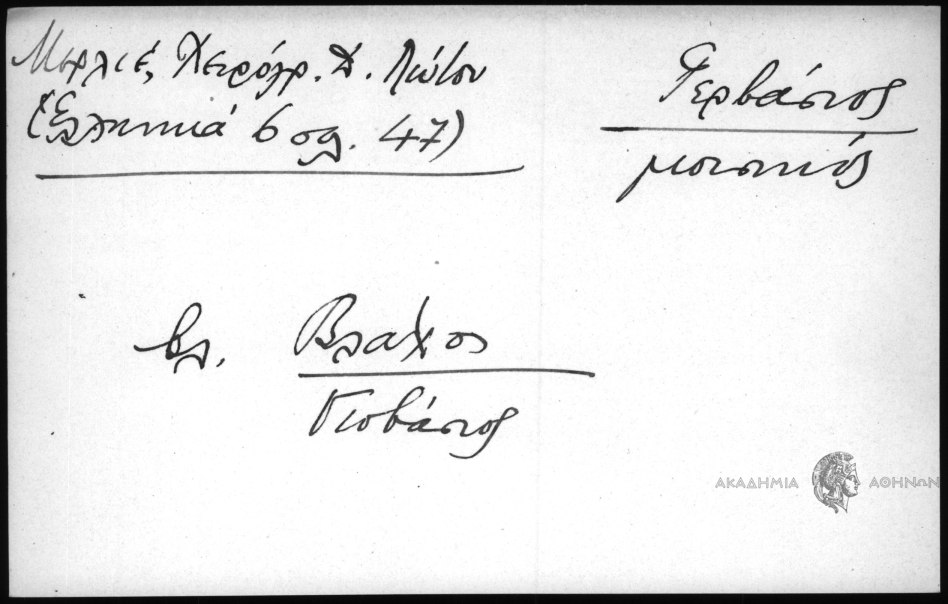 Μερλιέ, Χειρόγρ. Δ. Λιώτου
(Ἑλληνικά 6 σελ. 47)
Γερβάσιος
μουσικός
βλ. Βλάχος
Γιοβάσιος
ΑΚΑΔΗΜΙΑ ΑΘΗΝΩΝ